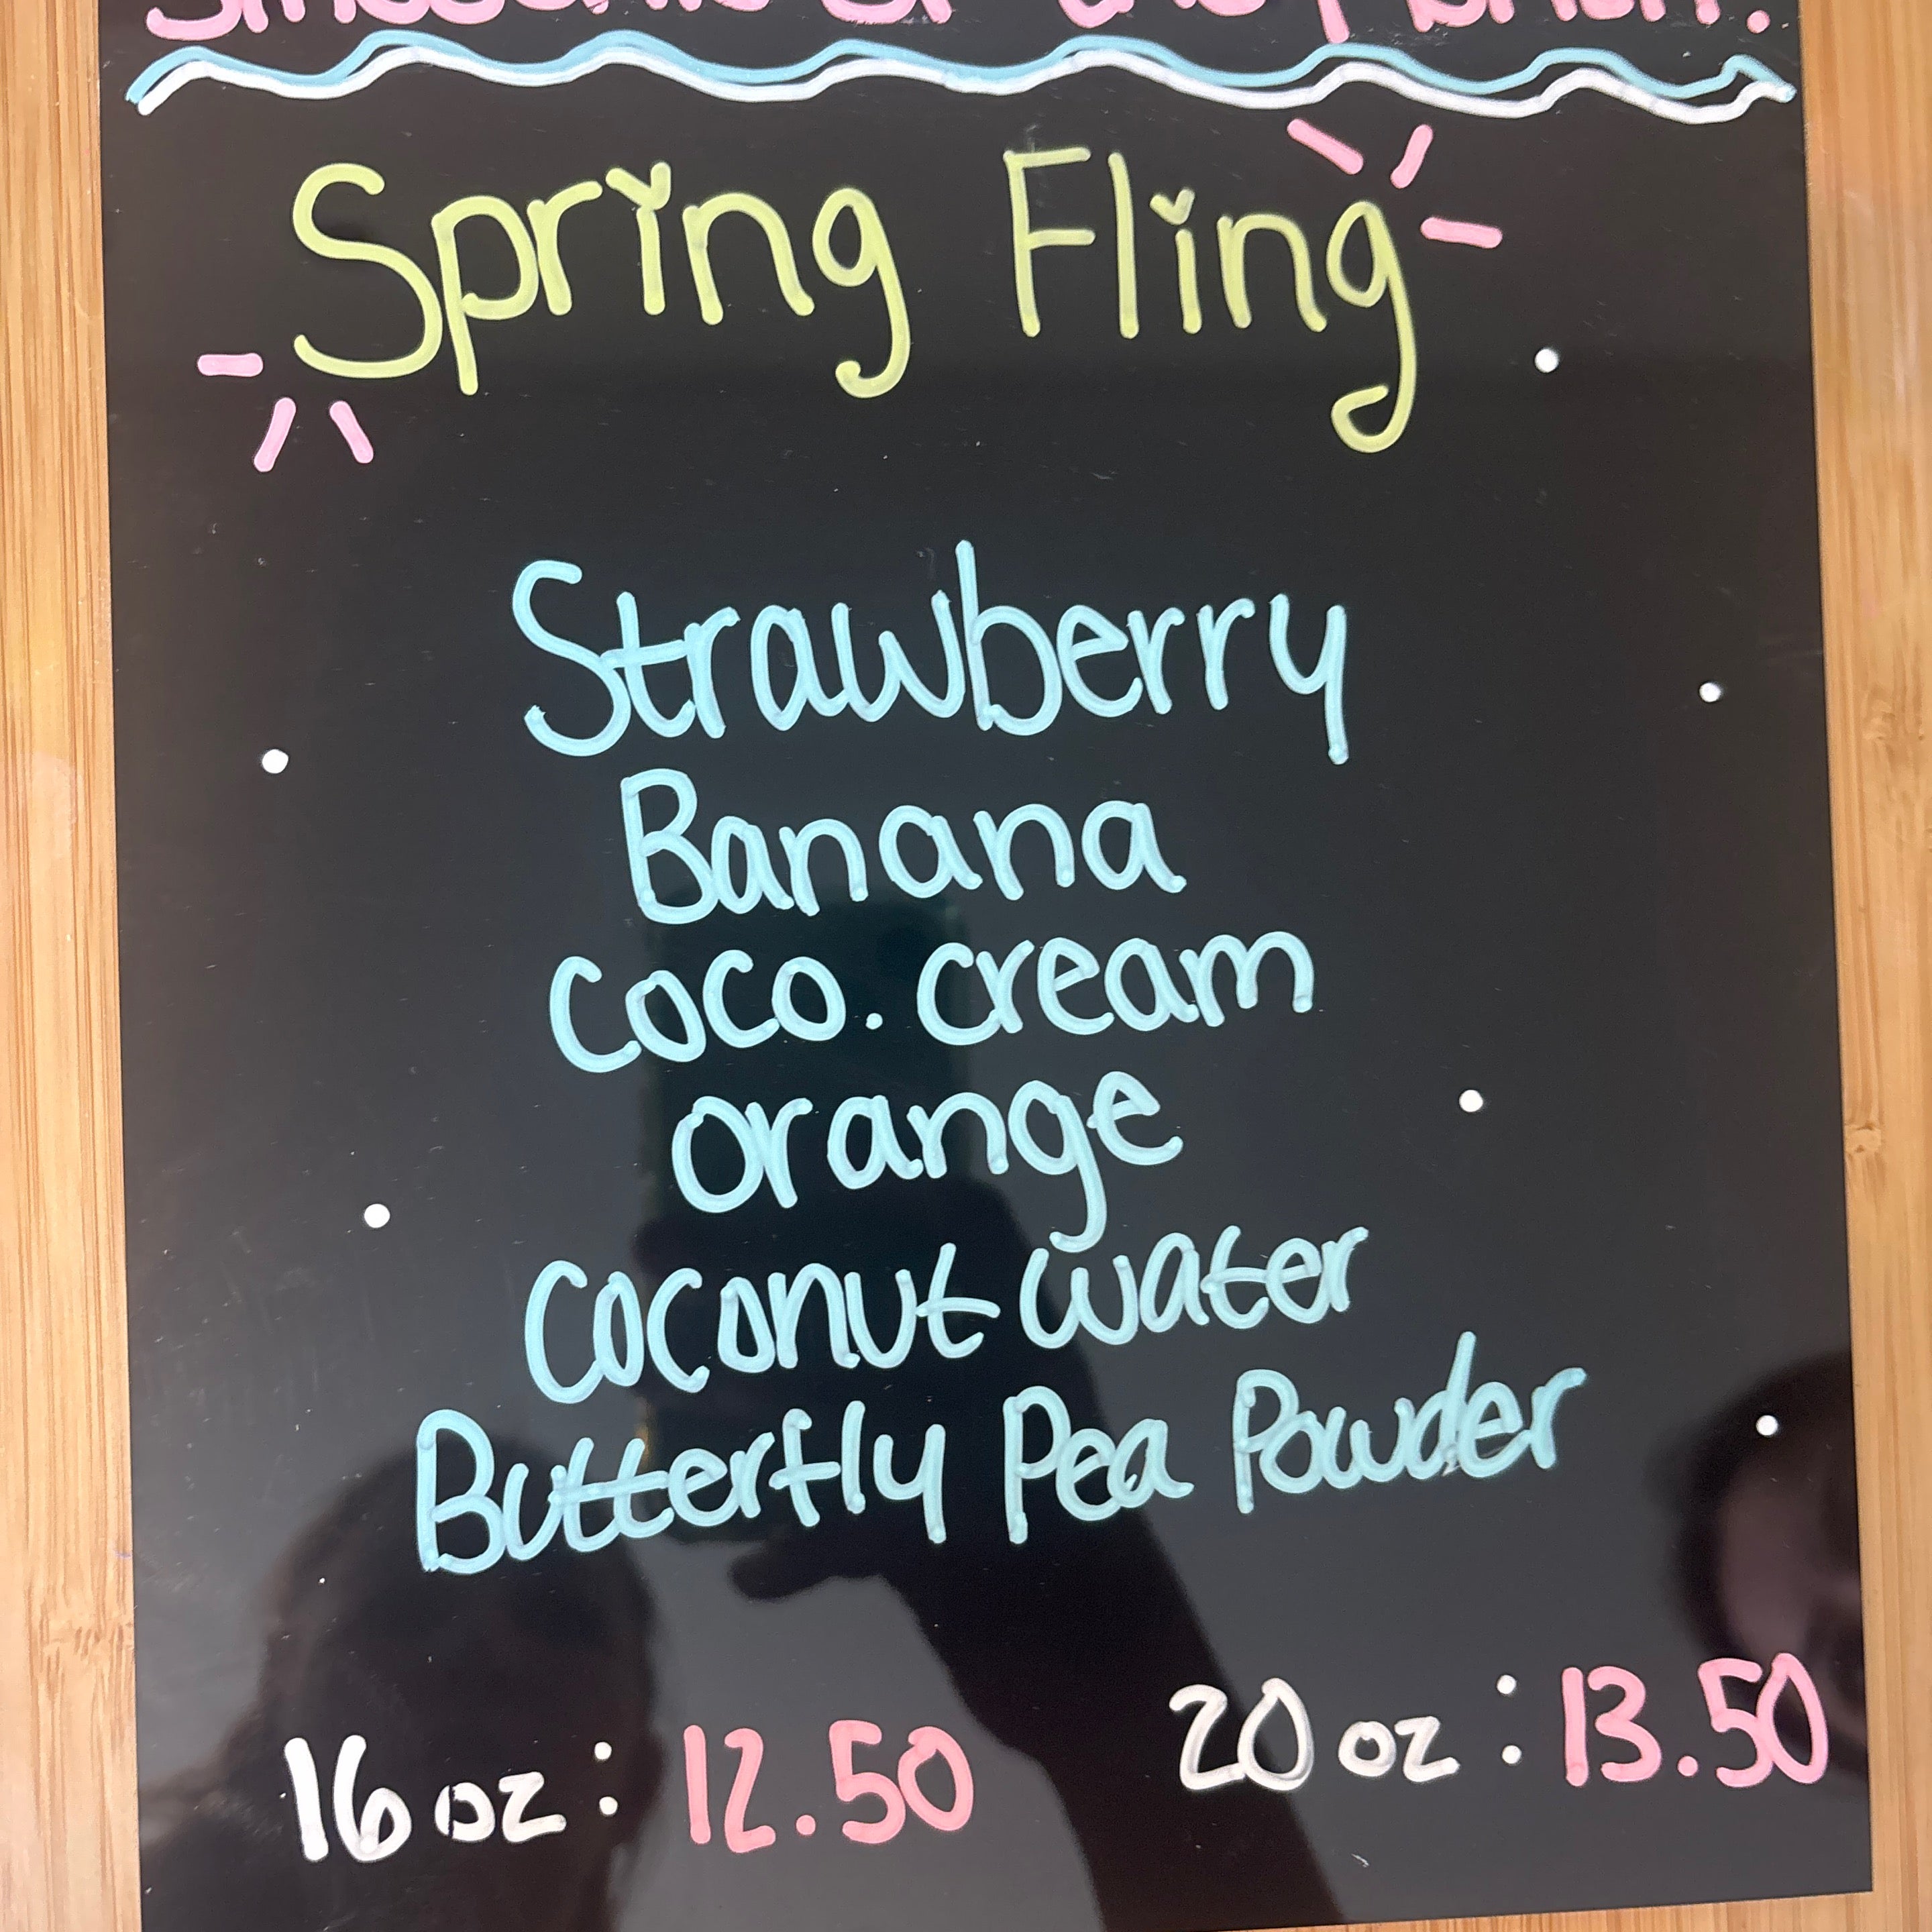 Smoothie of the Month!
Spring Fling
Strawberry
Banana
coco. cream
orange
coconut water
Butterfly Pea Powder
16 oz : 12.50
20 oz : 13.50